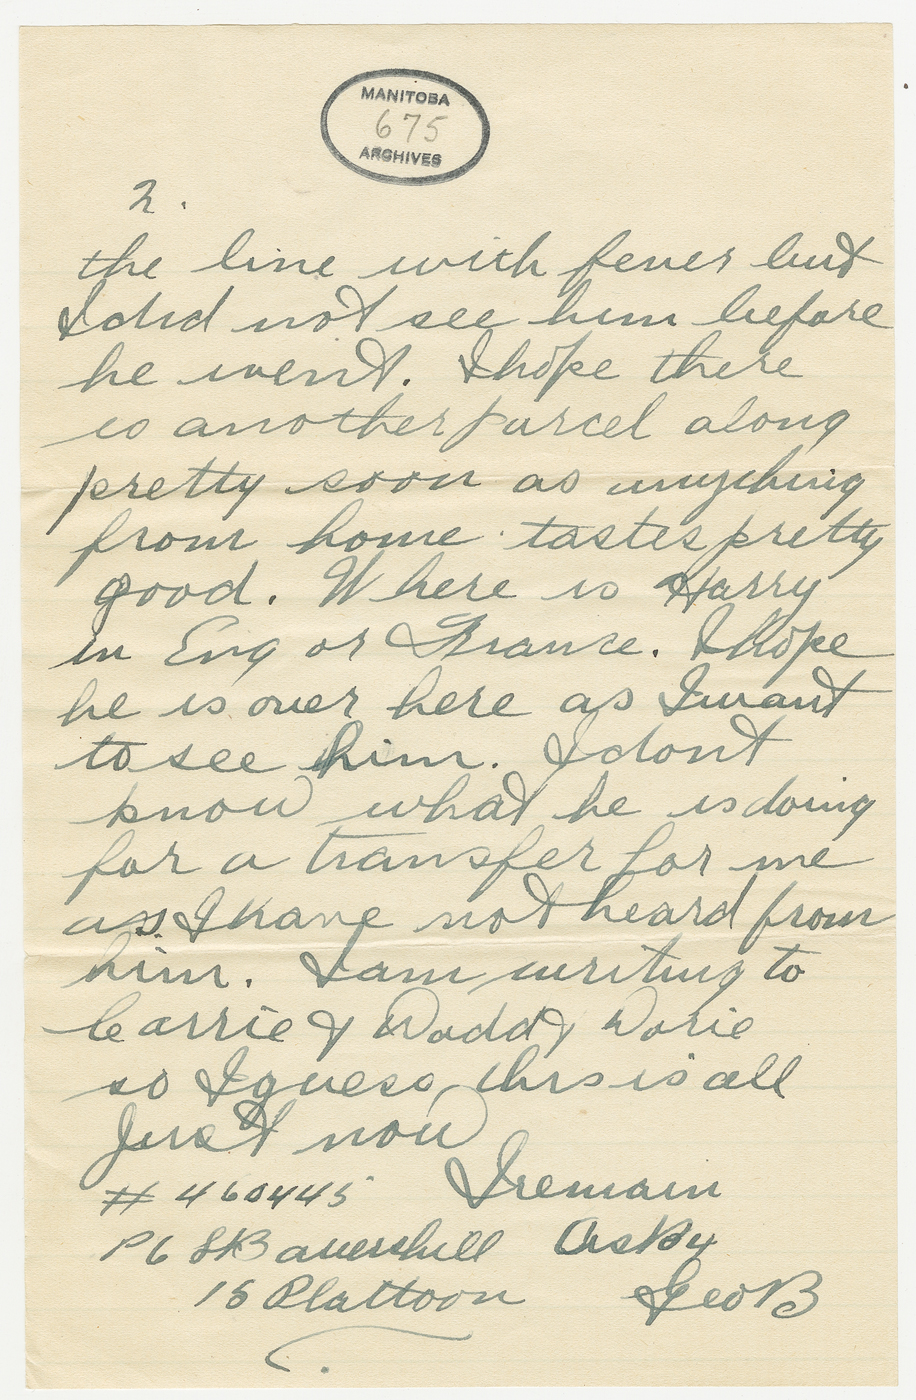 MANITOBA
675
ARCHIVES
2.
the line with fever but
I did not see him before
he went. I hope there
is another parcel along
pretty soon as anything
from home tastes pretty
good. Where is Harry
in Eng or France. I hope
he is over here as I want
to see him. I dont
know what he is doing
for a transfer for me
as I have not heard from
him. I am writing to
Carrie & Dad & Dorie
so I guess this is all
Just now
I remain
# 460445
As
15 Plattoon
Geo B